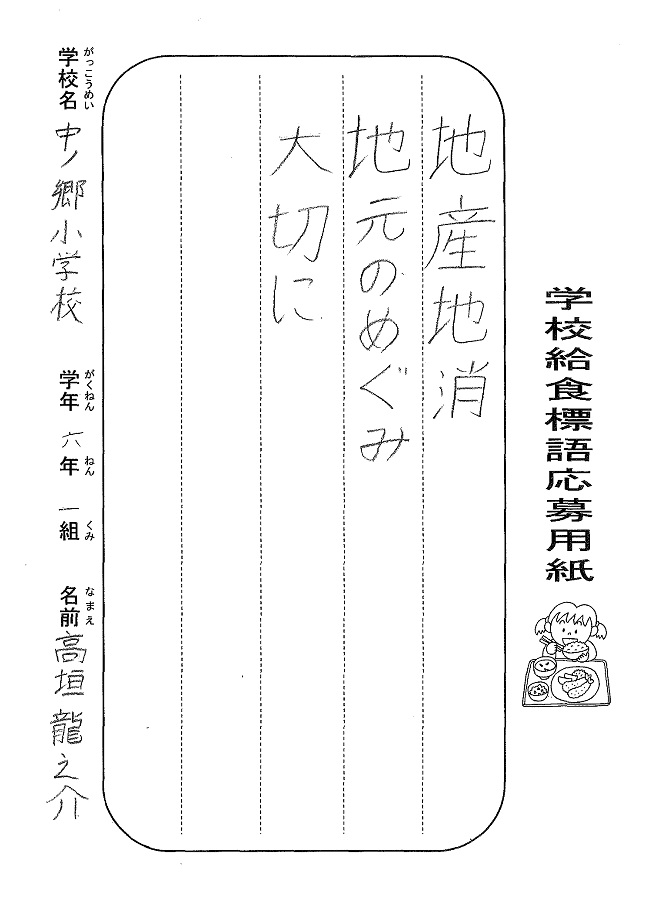 学校給食標語応募用紙
地産地消
地元のめぐみ
大切に
学校名 中ノ郷小学校 学年 六年 一組 名前 高垣龍之介
がっこうめい がくねん ねん くみ なまえ